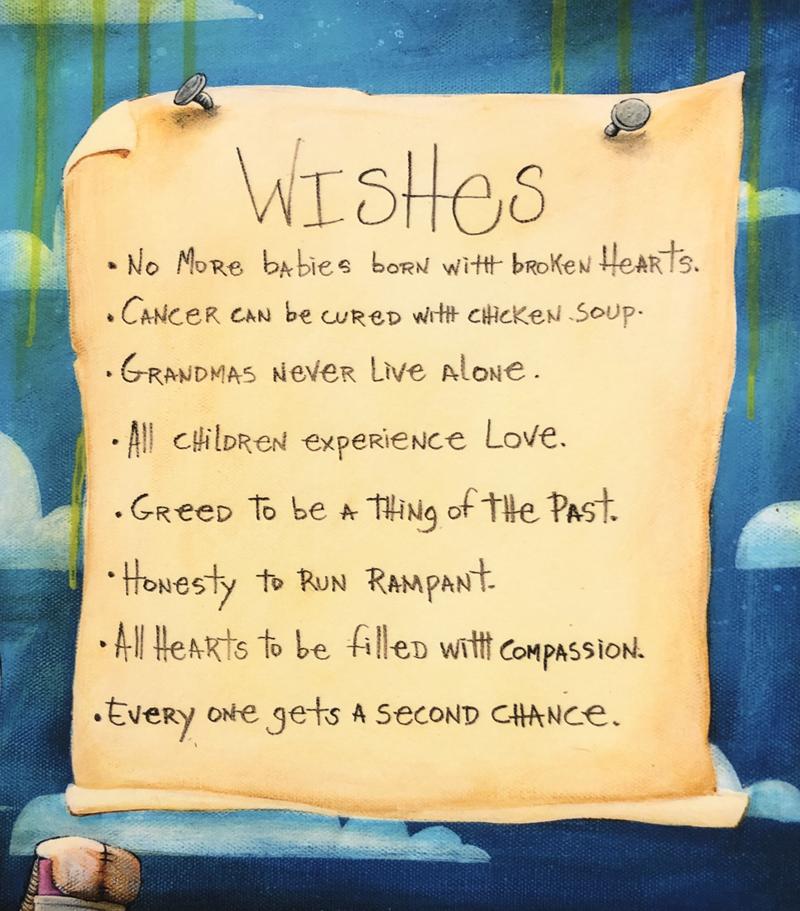 WISHes
• No More babies born with broken Hearts.
• Cancer can be cured with chicken soup.
• Grandmas never live alone.
• All children experience Love.
• Greed to be a thing of the Past.
• Honesty to Run Rampant.
• All Hearts to be filled with compassion.
• Every one gets a second chance.